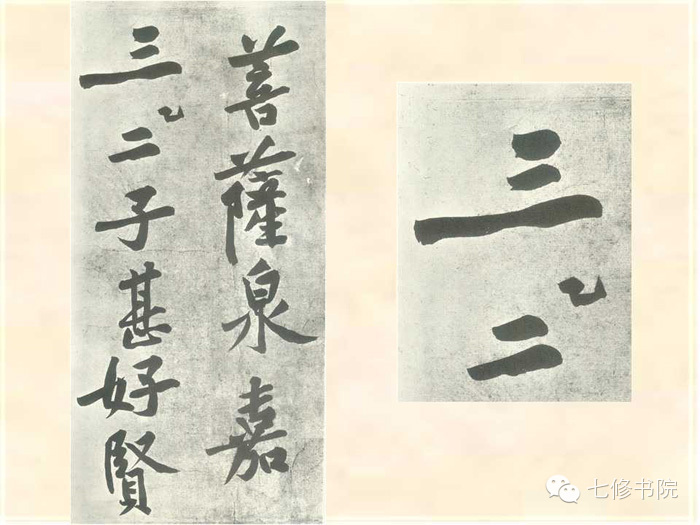 菩薩泉嘉
三二子甚好賢
三二
七修书院